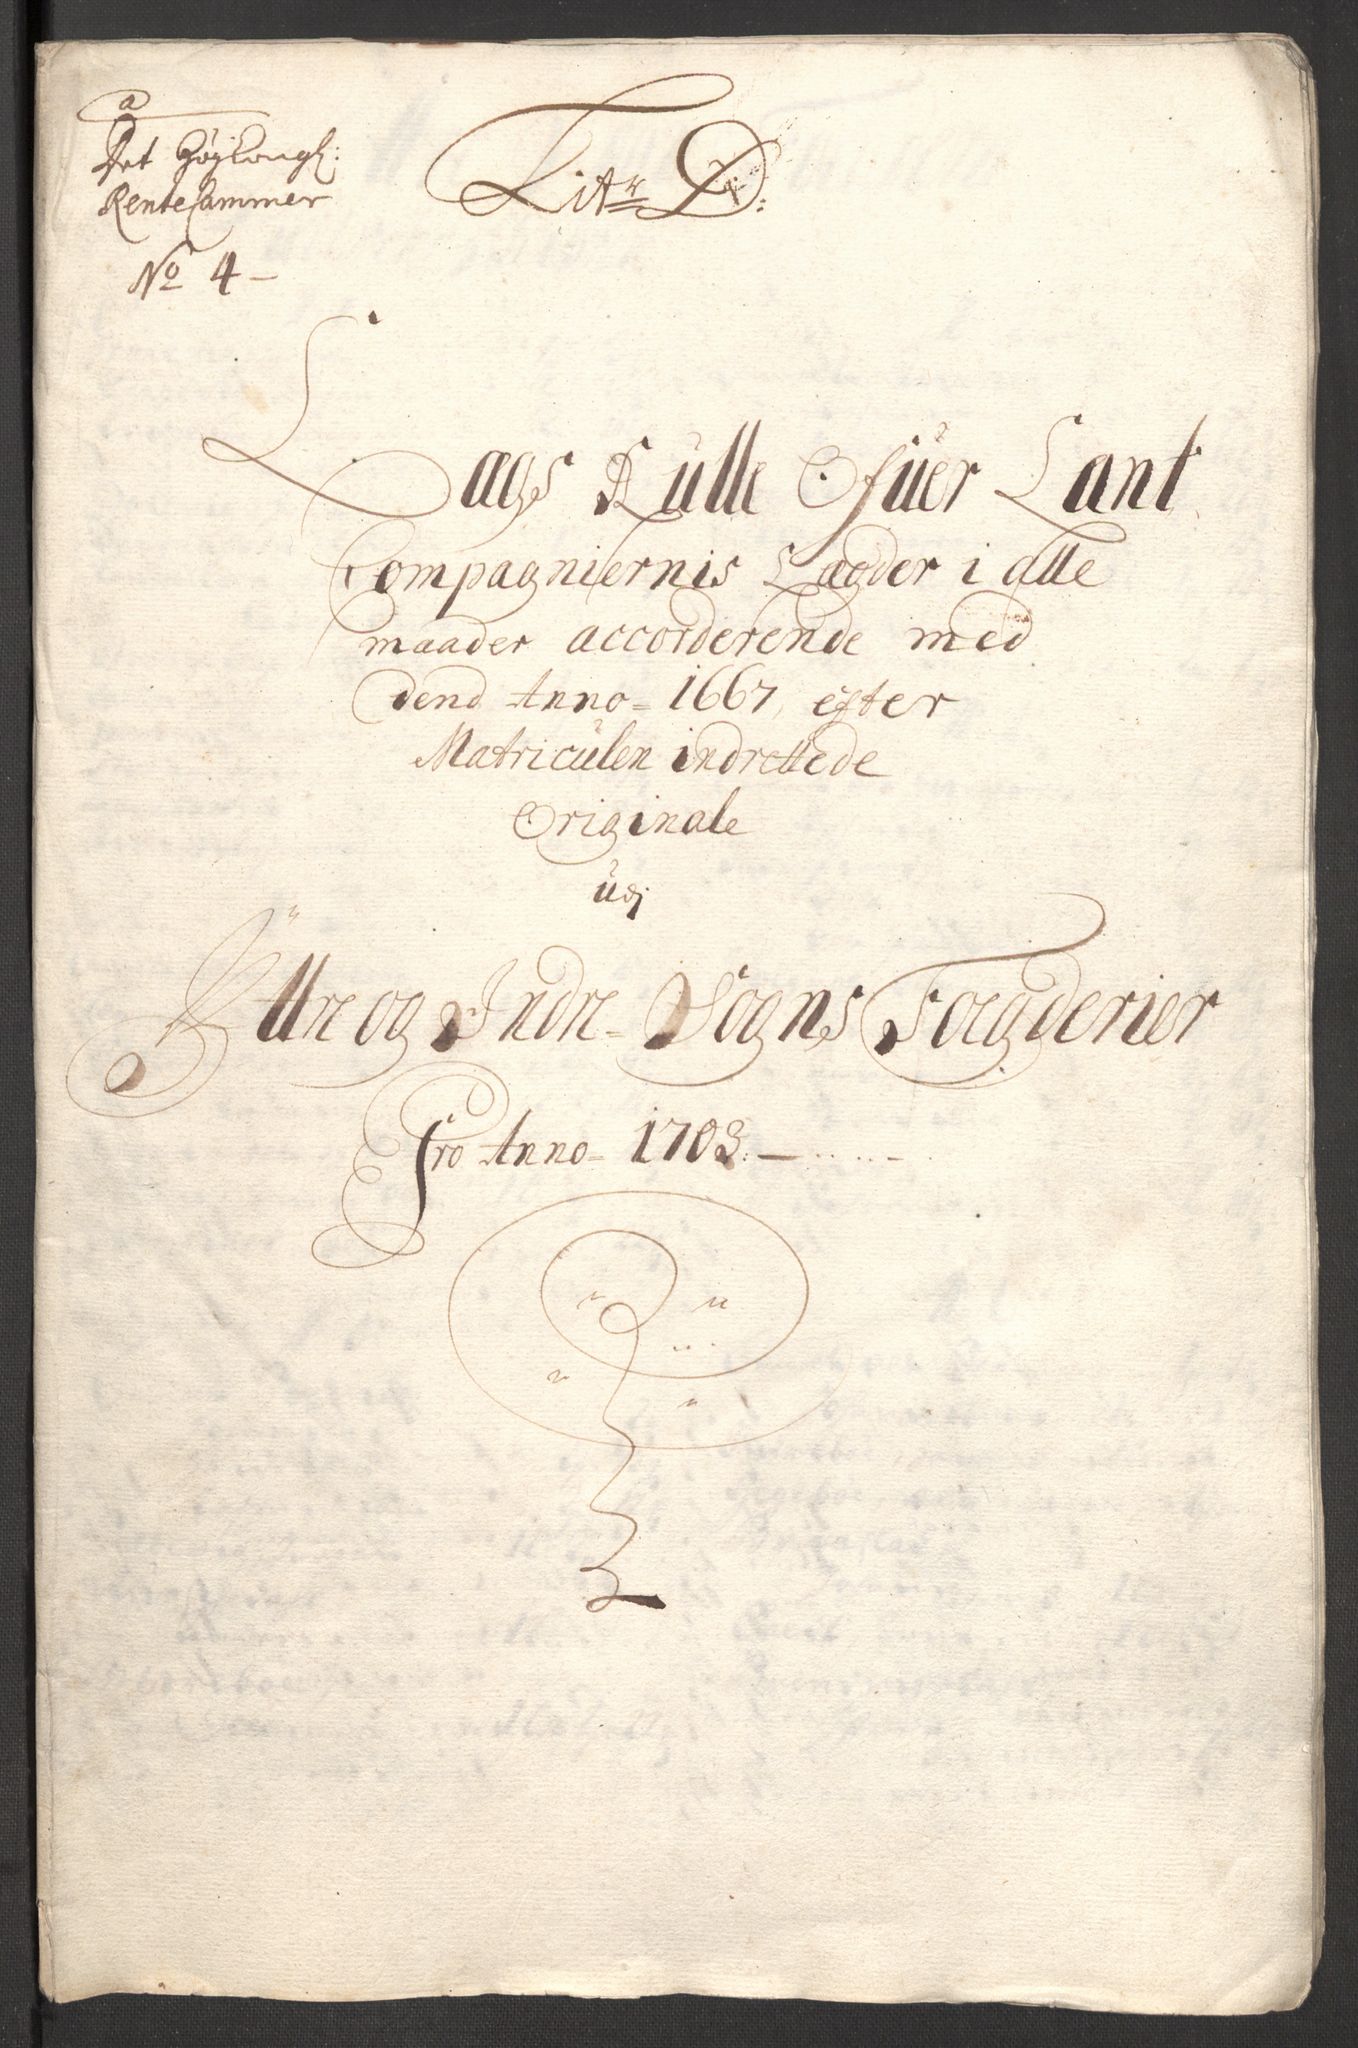 a
Det Højkongl:
RenteCammer
No 4 –
Litr D:
Lægs Rulle Ofuer Lant
Compagniernis Lægder i alle
maader accorderende med
dend Anno = 1667, efter
Matriculen indrettede
Originale
udj
Üttre og Indre = Sogns Foegderier
Pro Anno = 1703. –